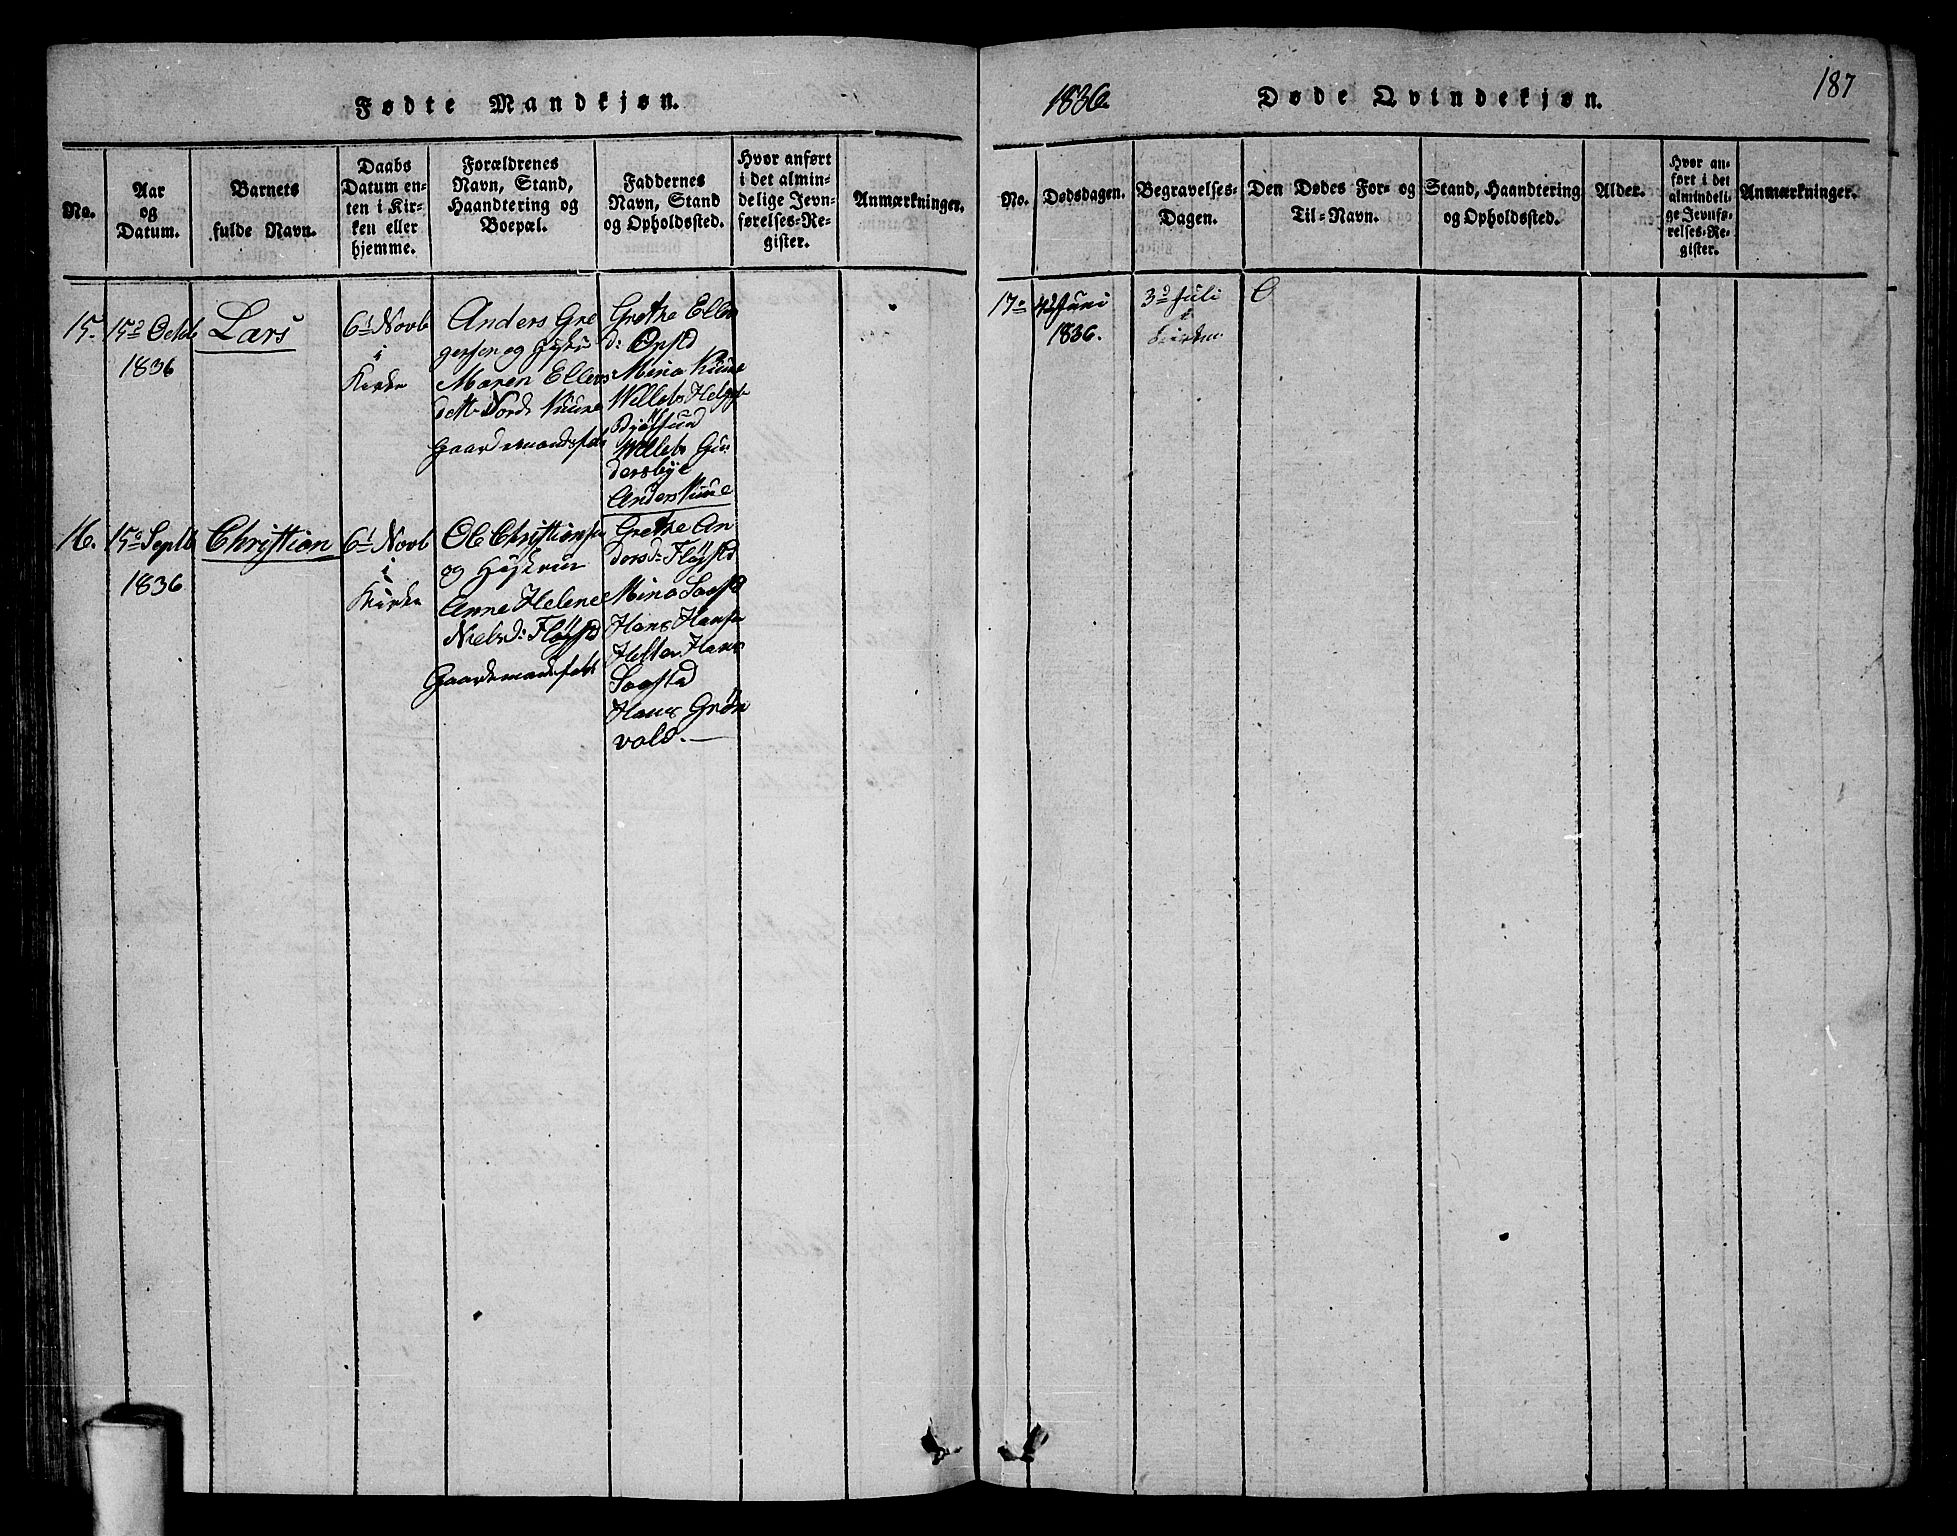 Fødte Mandkjøn.
No.
Aar
og
Datum.
Barnets
fulde Navn.
Daabs
Datum en-
ten i Kir-
ken eller
hjemme.
Forældrenes
Navn, Stand,
Haandtering og
Boepæl.
Faddernes
Navn, Stand
og Opholdssted.
Hvor anført
i det almin-
delige Jevn-
førelses-Re-
gister.
Anmærkninger.
15.
15de Octb
1836
Lars
6te Novb
i
Kirke
Anders Gre
gersen og
Maren Ellers
datt
Gaardmandsfolk
Grethe Ellers
d:
Anders
16.
15de Septb
1836
Christian
6te Novb
i
Kirke
Ole Christiansen
og Hustrue
Anne Helene
Nielsd: Fløgstd
Gaardmandsfolk
Grethe An
dersd: Fløgstd
Hans Hansen
Hans
Hans Grøn
vold.
1836
187
Døde Qvindekjøn.
No.
Dødsdagen.
Begravelses-
Dagen.
Den Dødes For- og
Til-Navn.
Stand, Haandtering
og Opholdssted.
Alder.
Hvor an-
ført i det
almindeli-
ge Jevnfø-
relses-Re-
gister.
Anmærkninger.
17
Juni
1836.
3de Juli